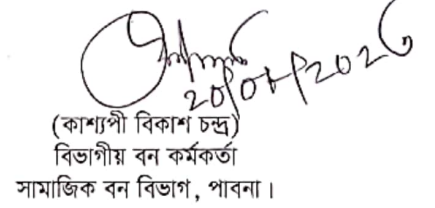 (কাশ্যপী বিকাশ চন্দ্র)
বিভাগীয় বন কর্মকর্তা
সামাজিক বন বিভাগ, পাবনা।